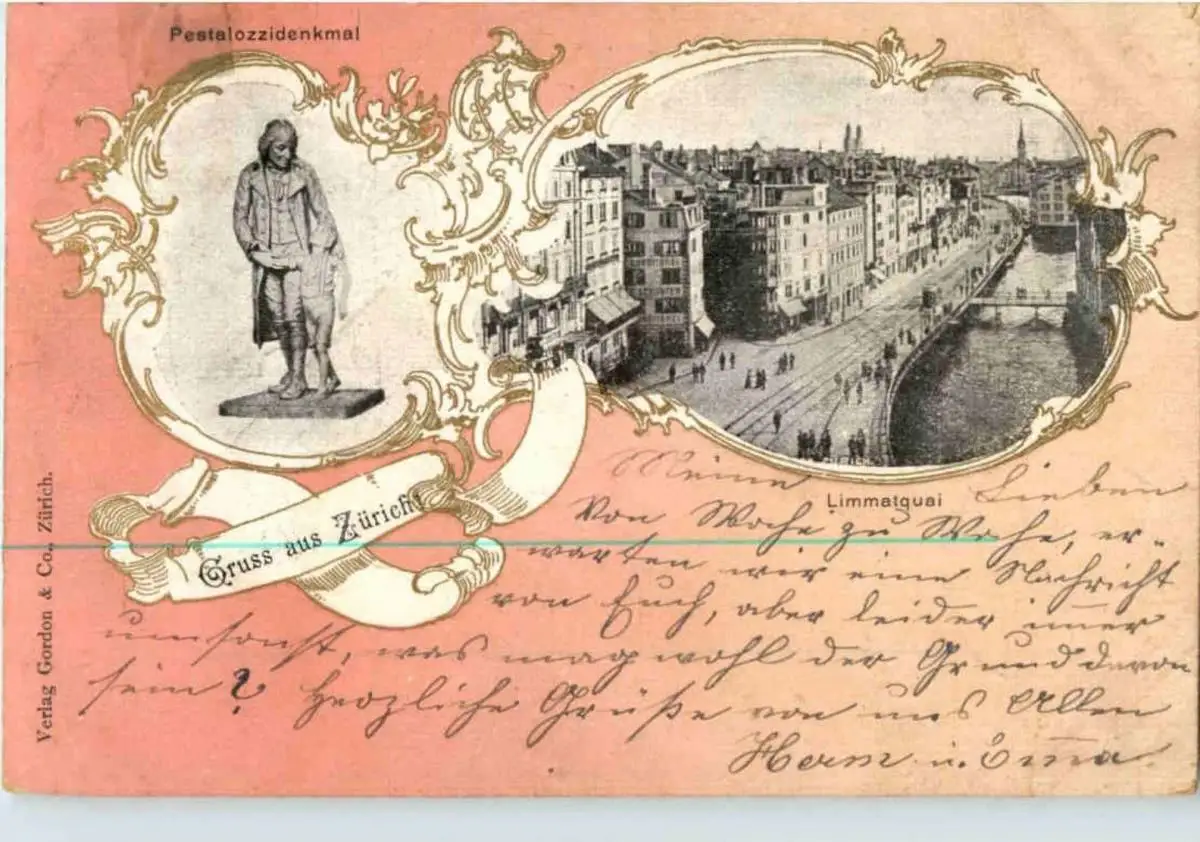 Pestalozzidenkmal
Limmatquai
Gruss aus Zürich!
Verlag Gordon & Co., Zürich.
Meine Lieben
Von Woche zu Woche, er-
warten wir eine Nachricht
von Euch, aber leider im̄er
umsonst, was mag wohl der Grund davon
sein? Herzliche Grüße von uns Allen
Herm u. Em̄a